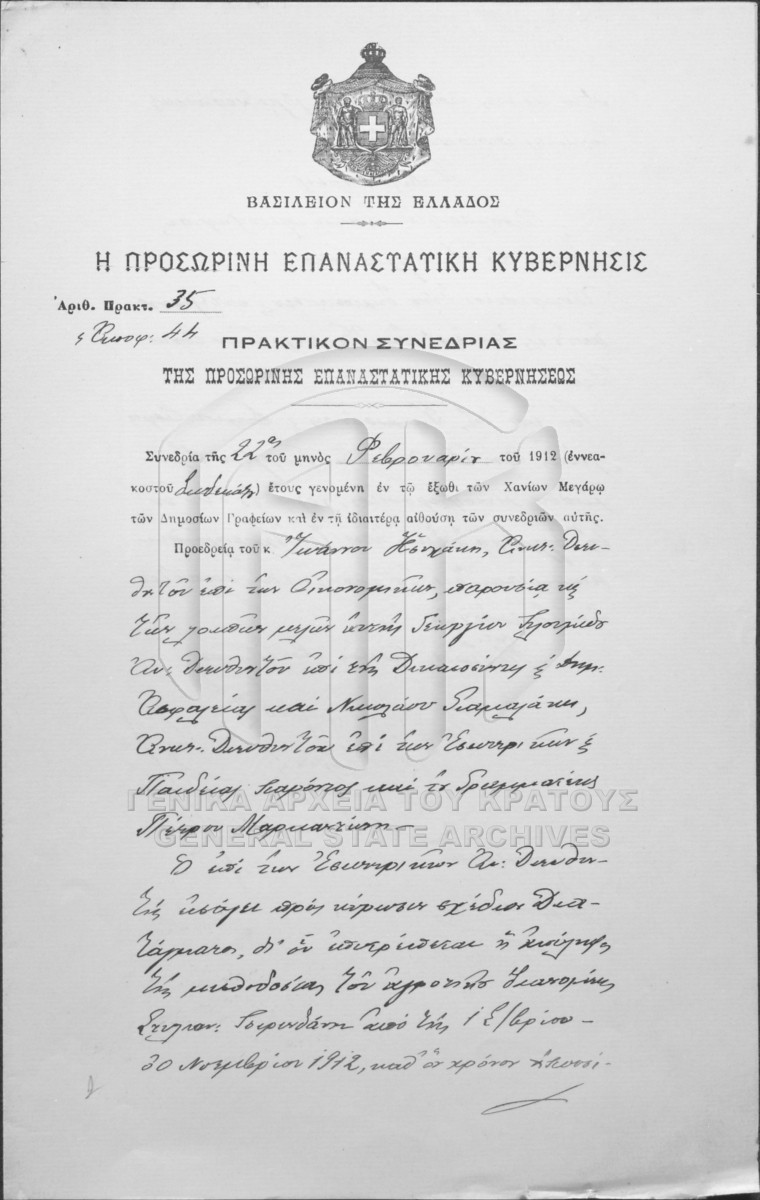 ΒΑΣΙΛΕΙΟΝ ΤΗΣ ΕΛΛΑΔΟΣ
Η ΠΡΟΣΩΡΙΝΗ ΕΠΑΝΑΣΤΑΤΙΚΗ ΚΥΒΕΡΝΗΣΙΣ
Ἀριθ. Πρακτ. 35
44
ΠΡΑΚΤΙΚΟΝ ΣΥΝΕΔΡΙΑΣ
ΤΗΣ ΠΡΟΣΩΡΙΝΗΣ ΕΠΑΝΑΣΤΑΤΙΚΗΣ ΚΥΒΕΡΝΗΣΕΩΣ
Συνεδρία τῆς 22ας τοῦ μηνὸς Φεβρουαρίου τοῦ 1912 (ἐννεα-
κοστοῦ δωδεκάτου) ἔτους γενομένη ἐν τῷ ἔξωθι τῶν Χανίων Μεγάρῳ
τῶν Δημοσίων Γραφείων καὶ ἐν τῇ ἰδιαιτέρᾳ αἰθούσῃ τῶν συνεδριῶν αὐτῆς.
Προεδρείᾳ τοῦ κ. Ἰωάννου Διευ-
θυντοῦ ἐπὶ τῶν Οἰκονομικῶν, παρουσίᾳ καὶ
τῶν λοιπῶν μελῶν αὐτῆς Γεωργίου
Διευθυντοῦ ἐπὶ τῆς Δικαιοσύνης & Δημ.
Ἀσφαλείας καὶ Νικολάου Γιαμαλάκη,
Διευθυντοῦ ἐπὶ τῶν Ἐσωτερικῶν &
Παιδείας παρόντος καὶ τοῦ Γραμματέως
Πέτρου
ΓΕΝΙΚΑ ΑΡΧΕΙΑ ΤΟΥ ΚΡΑΤΟΥΣ
GENERAL STATE ARCHIVES
Ὁ ἐπὶ τῶν Ἐσωτερικῶν Ἀν. Διευθυν-
τὴς εἰσάγει πρὸς κύρωσιν σχέδιον Δια-
τάγματος, δι' οὗ ἐπιτρέπεται ἡ
τῆς μισθοδοσίας τοῦ ἀγροτικοῦ διανομέως
ἀπὸ τῆς 1
30 Νοεμβρίου 1912, καθ' ὃν χρόνον